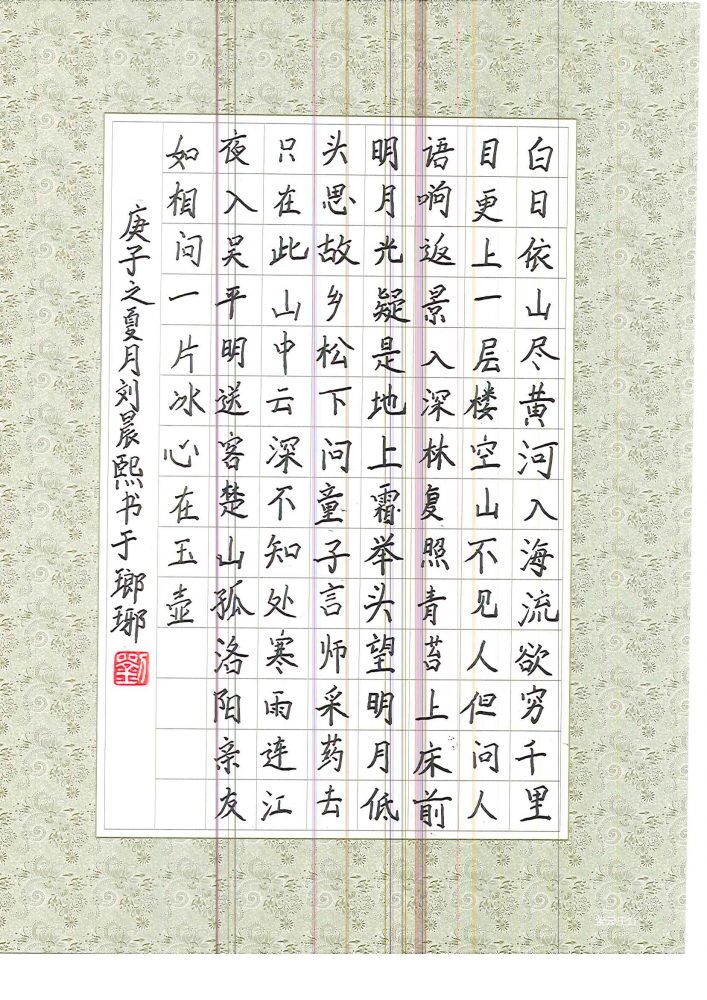 白日依山尽黄河入海流欲穷千里
目更上一层楼空山不见人但问人
语响返景入深林复照青苔上床前
明月光疑是地上霜举头望明月低
头思故乡松下问童子言师采药去
只在此山中云深不知处寒雨连江
夜入吴平明送客楚山孤洛阳亲友
如相问一片冰心在玉壶
庚子之夏月刘晨熙书于瑯琊
劉